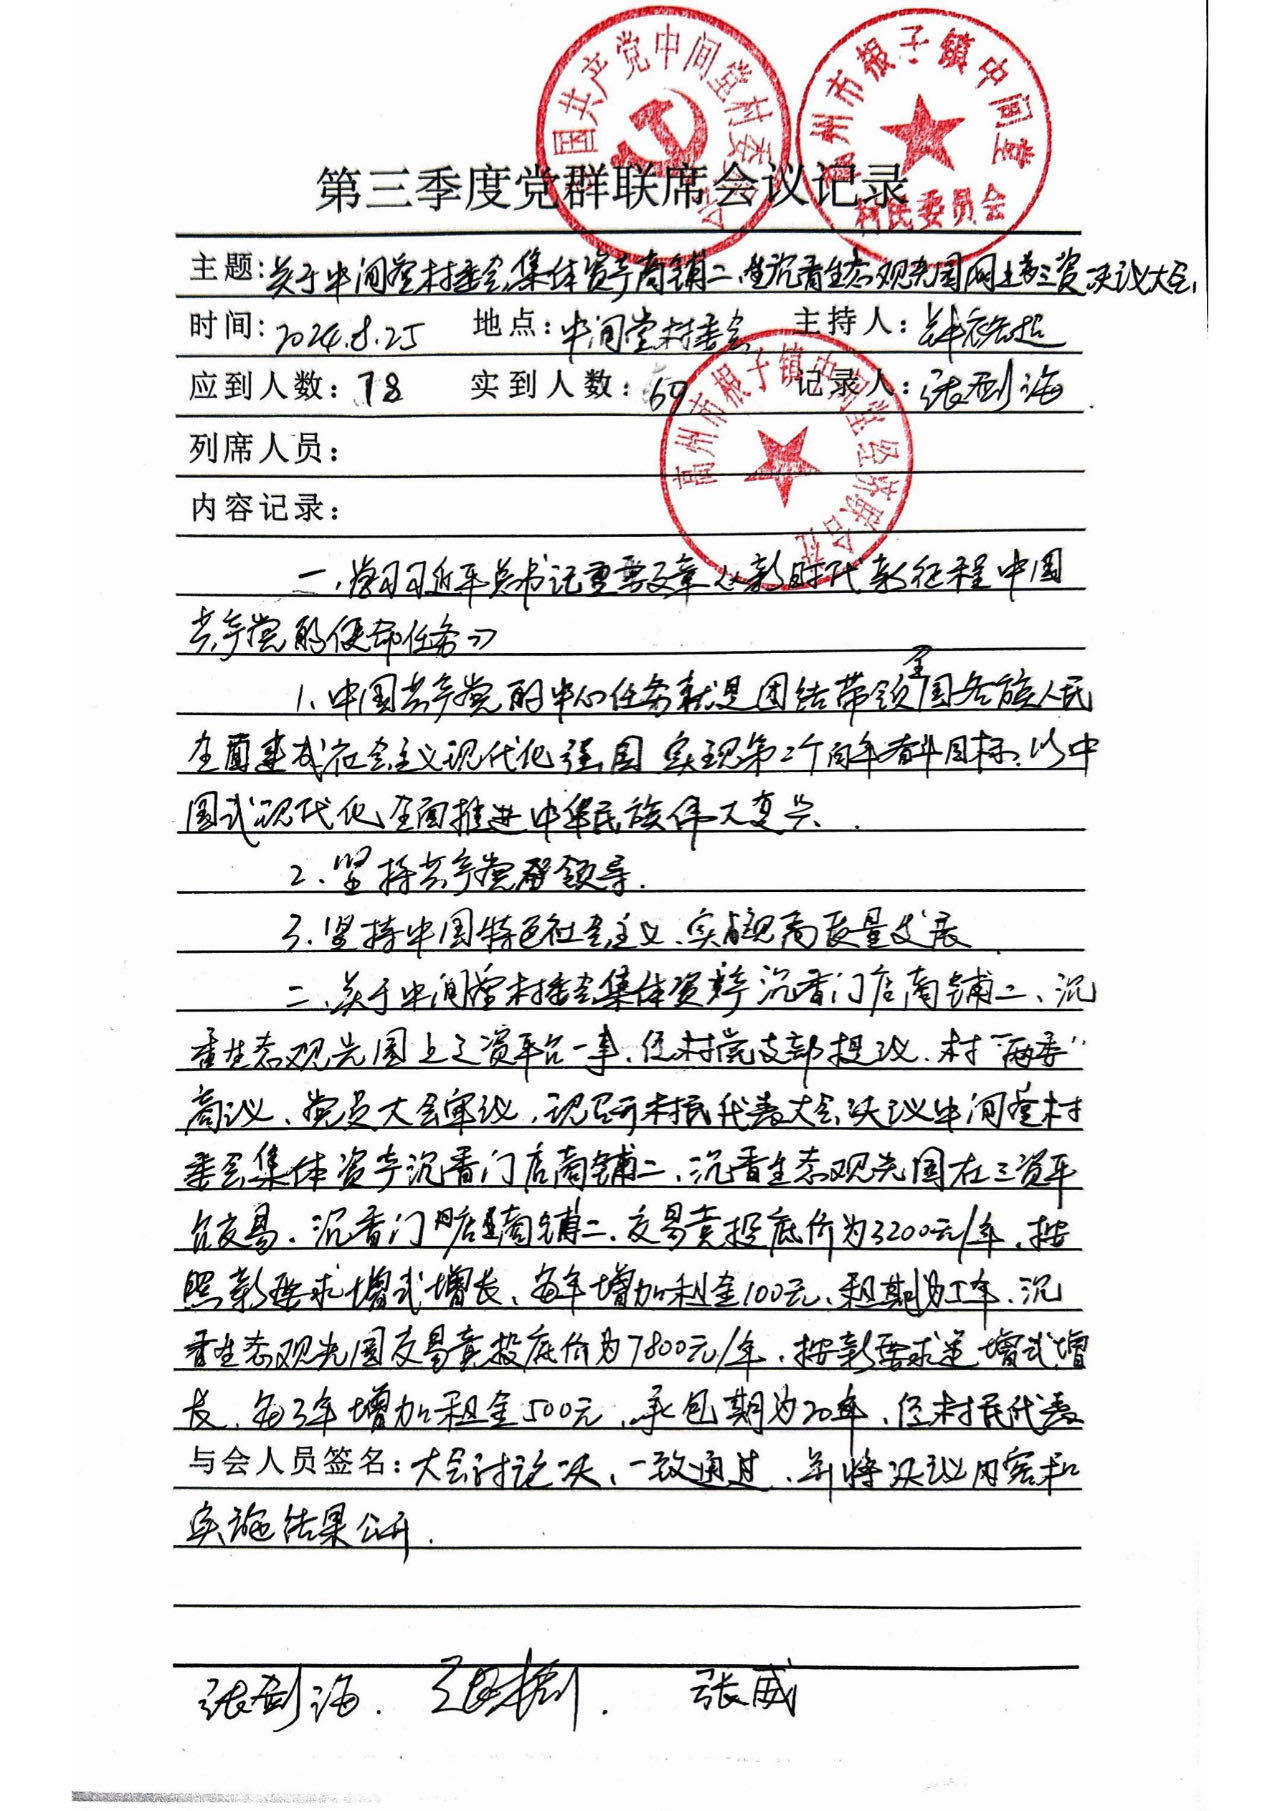 中国共产党中间堂村委员会
高州市根子镇中间堂
村民委员会
第三季度党群联席会议记录
主题:关于中间堂村委会集体资产商铺二、沉香生态观光园网上三资决议大会,
时间:2024.8.25 地点:中间堂村委会 主持人:
应到人数:78 实到人数:69 记录人:张剑海
高州市根子镇中间堂经济联合社
列席人员:
内容记录:
一、学习习近平总书记重要文章《新时代新征程中国
共产党的使命任务》
1、中国共产党的中心任务就是团结带领全国各族人民
全面建成社会主义现代化强国 实现第二个百年奋斗目标、以中
国式现代化全面推进中华民族伟大复兴.
2、坚持共产党的领导.
3、坚持中国特色社会主义、实现高质量发展
二、关于中间堂村委会集体资产沉香门店商铺二、沉
香生态观光园上三资平台一事、经村党支部提议、村"两委"
商议、党员大会审议,现召开村民代表大会决议中间堂村
委会集体资产沉香门店商铺二、沉香生态观光园在三资平
台交易、沉香门店商铺二、交易竞投底价为3200元/年、按
照新要求增式增长、每年增加租金100元、租期为5年、沉
香生态观光园交易竞投底价为7800元/年、按新要求递增式增
长、每3年增加租金500元、承包期为20年、经村民代表
与会人员签名:大会讨论决、一致通过、并将决议内容和
实施结果公开.
张剑海. 张威